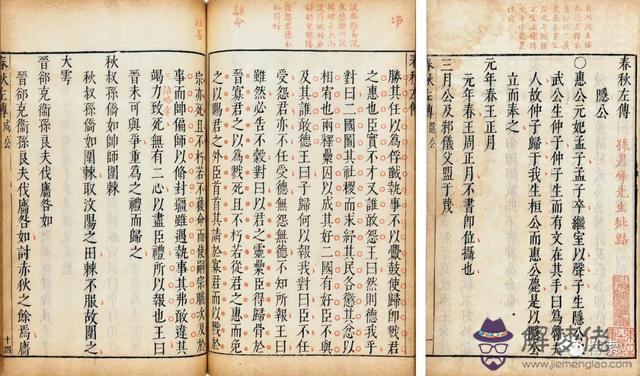 春秋左傳
隱公
○惠公元妃孟子孟子卒繼室以聲子生隱公宋
武公生仲子仲子生而有文在其手曰為魯夫
人故仲子歸于我生桓公而惠公薨是以隱公
立而奉之
元年春王正月
元年春王周正月不書即位攝也
三月公及邾儀父盟于蔑
春秋左傳 隱公
孫月峰先生批點
春秋左傳
勝其任以為俘馘執事不以釁鼓使歸即戮君
之惠也臣實不才又誰敢怨王曰然則德我乎
對曰二國圖其社稷而求紓其民各懲其忿以
相宥也兩釋纍囚以成其好二國有好臣不與
及其誰敢德王曰子歸何以報我對曰臣不任
受怨君亦不任受德無怨無德不知所報王曰
雖然必告不穀對曰以君之靈纍臣得歸骨於
晉寡君之以為戮死且不朽若從君之惠而免
之以賜君之外臣首首其請於寡君而以戮於
宗亦死且不朽若不獲命而使嗣宗職次及於
事而帥偏師以脩封疆雖遇執事其弗敢違其
竭力致死無有二心以盡臣禮所以報也王曰
晉未可與爭重為之禮而歸之
秋叔孫僑如帥師圍棘
秋叔孫僑如圍棘取汶陽之田棘不服故圍之
大雩
晉郤克衛孫良夫伐廧咎如
晉郤克衛孫良夫伐廧咎如討赤狄之餘焉廧
春秋左傳 成公 十四
解梦佬
www.jiemenglao.com